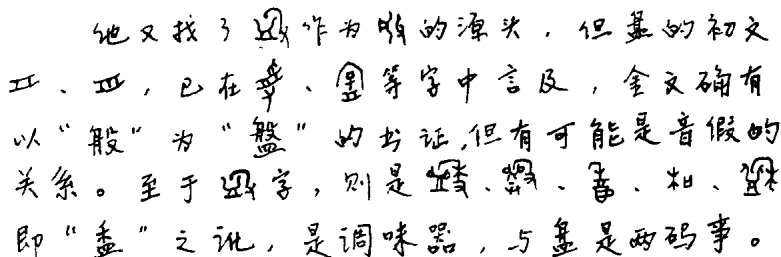 他又找了作为的源头，但盘的初文
、，已在、等字中言及，金文确有
以“般”为“盤”的书证，但有可能是音假的
关系。至于字，则是、、、、
即“盉”之讹，是调味器，与盘是两码事。